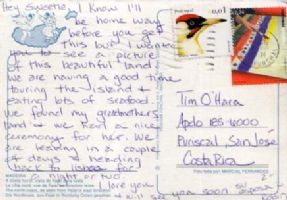 Hey Sweetie, I know I'll
be home way
before you get
this but I wanted
you to see a picture
of this beautiful land.
we are having a good time
touring the island &
eating lots of seafood.
We found my grandmothers
land & we had a nice
ceremony for her. We
are leaving in a couple
of days & heading
back to lisboa for
a night or two.
love you
will see you soon
Tim O'Hara
Apdo 185-6000
Puriscal San José
Costa Rica
MADEIRA